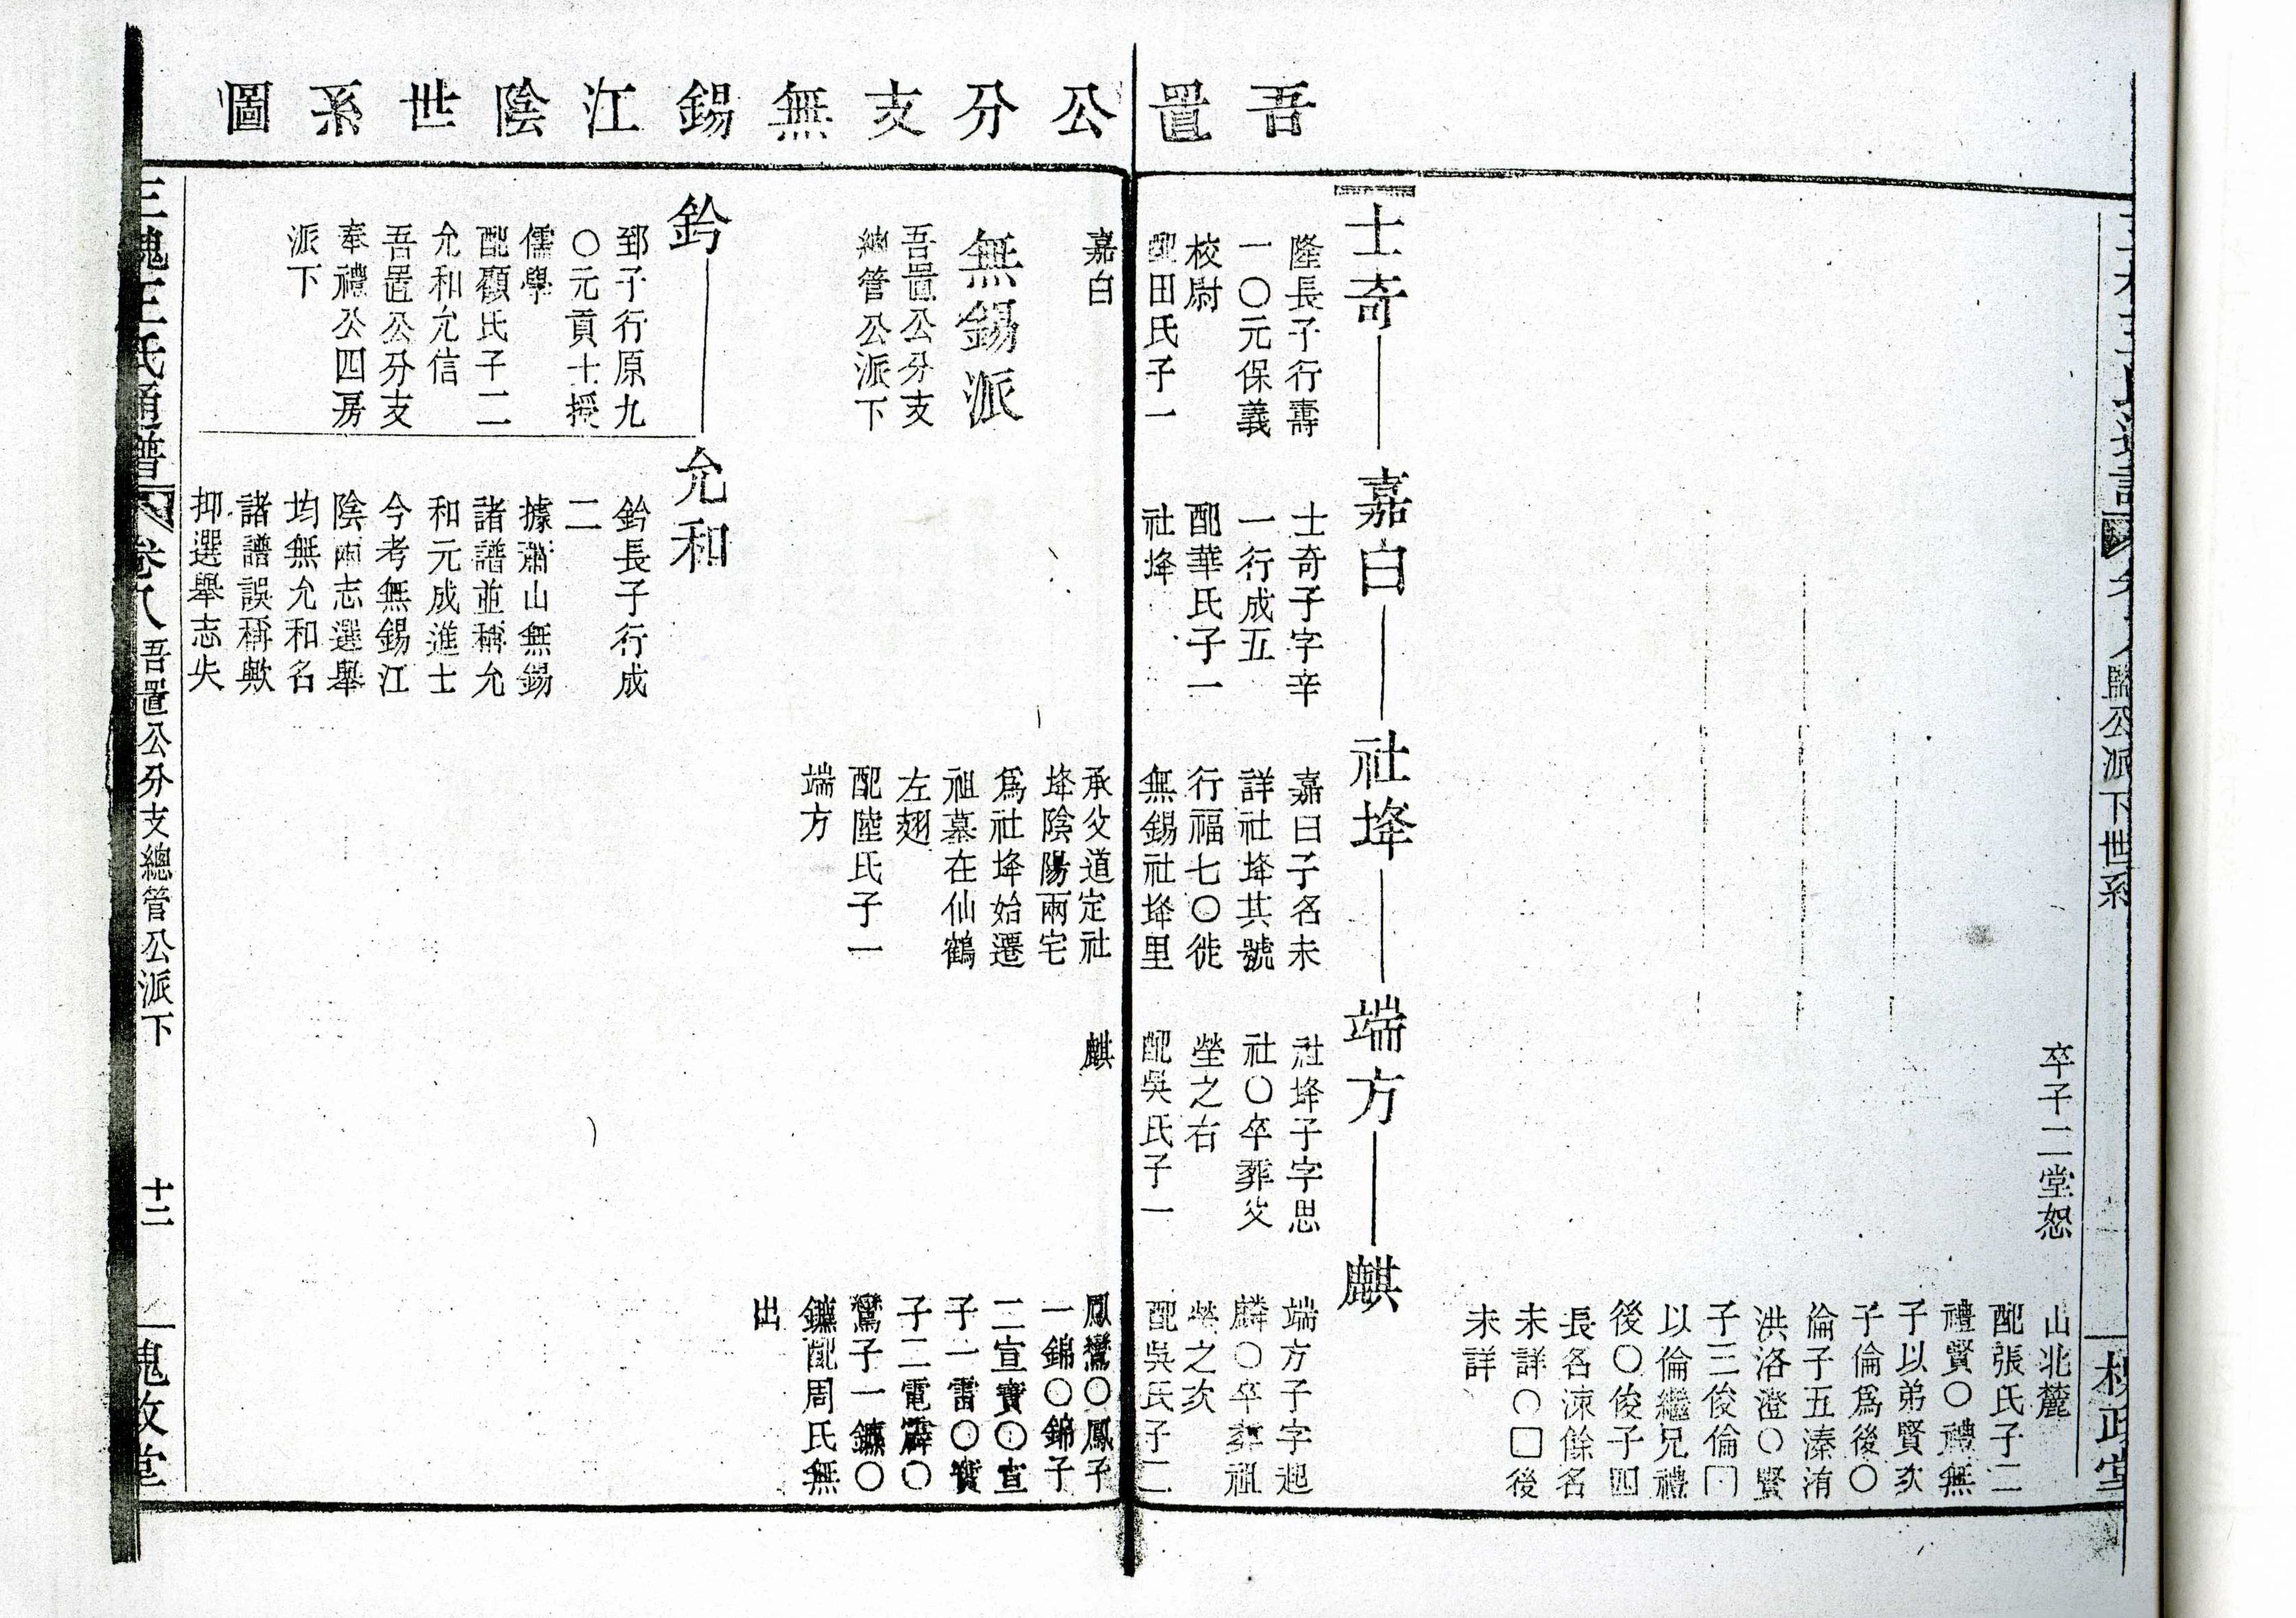 吾置公分支無錫江陰世系圖
監公派下世系
卒子二堂恕
山北麓
配張氏子二
禮賢〇禮無
子以弟賢次
子倫為後〇
倫子五溱洧
洪洛澄〇賢
子三俊倫囗
以倫繼兄禮
後〇俊子四
長名涷餘名
未詳〇囗後
未詳
士奇
隆長子行壽
一〇元保義
校尉
配田氏子一
嘉白
嘉白
士奇子字辛
一行成五
配華氏子一
社㙂
社㙂
嘉曰子名未
詳社㙂其號
行福七〇徙
無錫社㙂里
承父道定社
㙂陰陽兩宅
爲社㙂始遷
祖墓在仙鶴
左翅
配陸氏子一
端方
端方
社㙂子字思
社〇卒葬父
塋之右
配吳氏子一
麒
麒
端方子字起
麟〇卒葬祖
塋之次
配吳氏子二
鳳鸞〇鳳子
一錦〇錦子
二宣寶〇宣
子一雷〇寶
子二電霹〇
鸞子一鑣〇
鑣配周氏無
出
無錫派
吾置公分支
總管公派下
鈐
郅子行原九
〇元貢士授
儒學
配顧氏子二
允和允信
吾置公分支
奉禮公四房
派下
允和
鈐長子行成
二
據蕭山無錫
諸譜並稱允
和元成進士
今考無錫江
陰兩志選舉
均無允和名
諸譜誤稱歟
抑選舉志失
三槐王氏通譜
卷八
吾置公分支總管公派下
十二
槐政堂